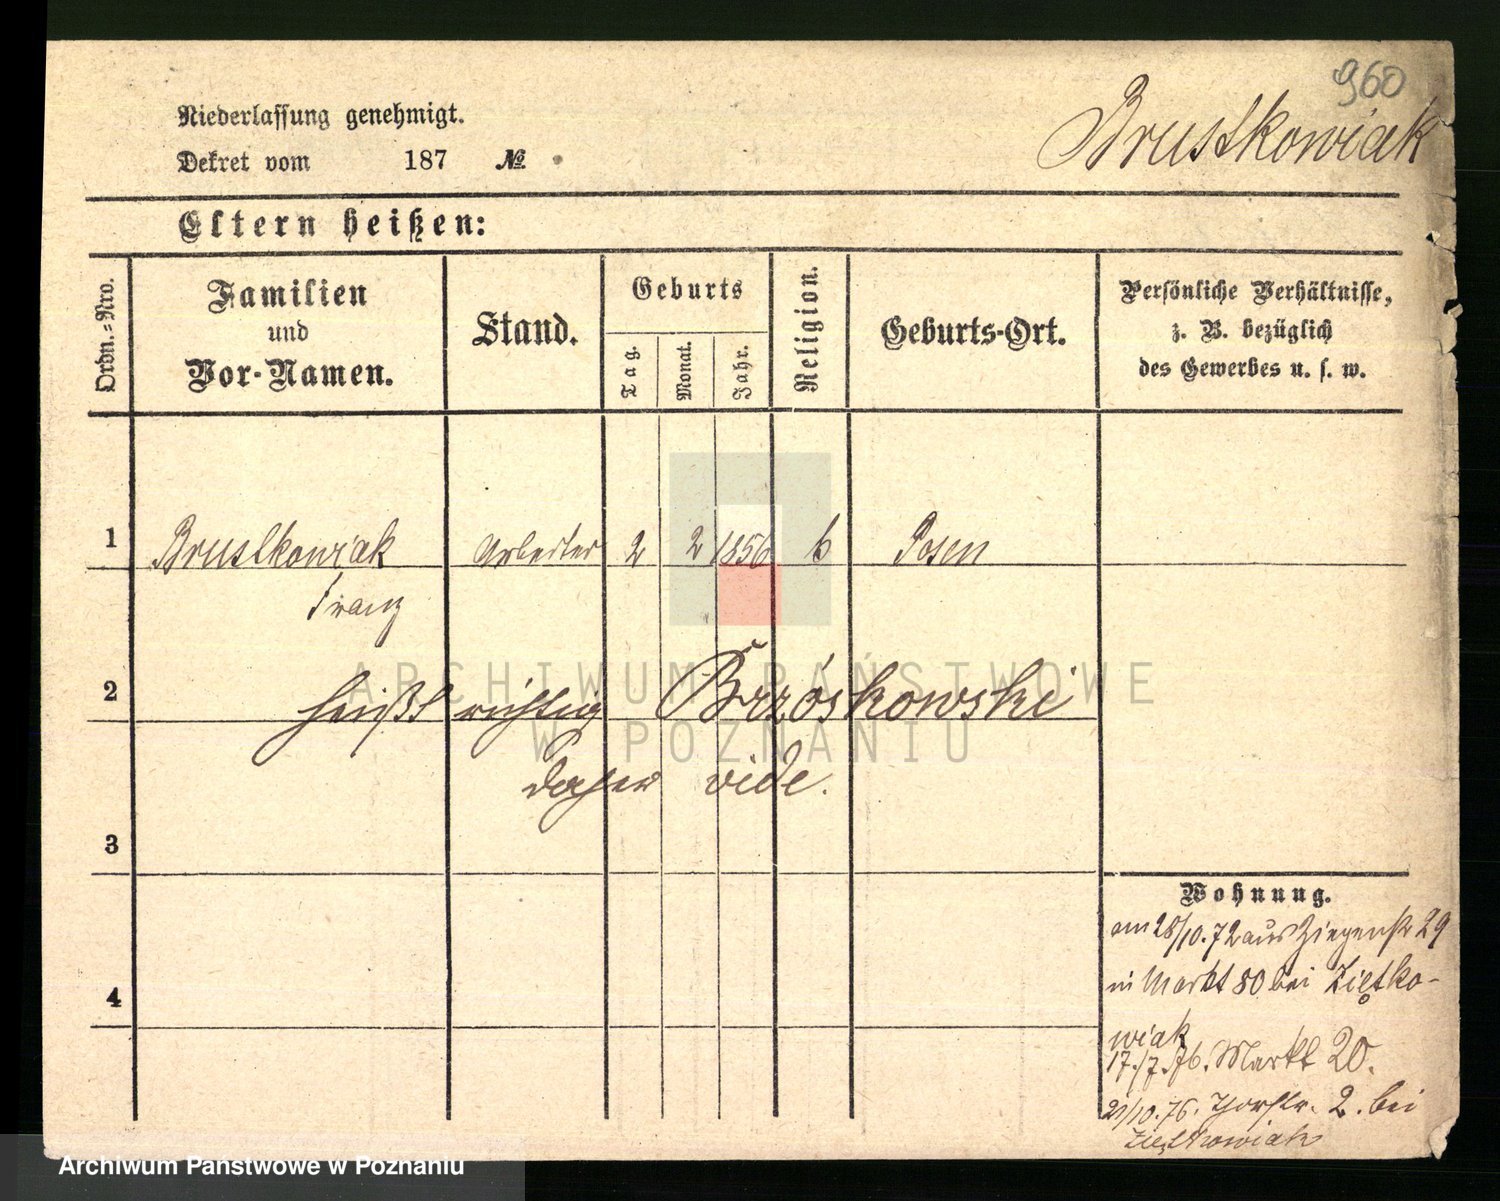 960
Niederlassung genehmigt.
Brustkowiak
Dekret vom 187 №
Eltern heißen:
Ordn.=Nro.
Familien
und
Vor-Namen.
Stand.
Geburts
Tag.
Monat.
Jahr.
Religion.
Geburts-Ort.
Persönliche Verhältnisse,
z. B. bezüglich
des Gewerbes u. s. w.
1 Brustkowiak Arbeiter 2 2 1856 k Posen
Franz
2 heißt richtig Brzóskowski
daher vide.
3
Wohnung.
am 28/10.72 aus Ziegenstr 29
in Markt 80 bei Ziętko-
4
wiak
17./7.76. Markt 20.
21/10.76. Thorstr. 2. bei
Ziętkowiak
ARCHIWUM PAŃSTWOWE
W POZNANIU
Archiwum Państwowe w Poznaniu